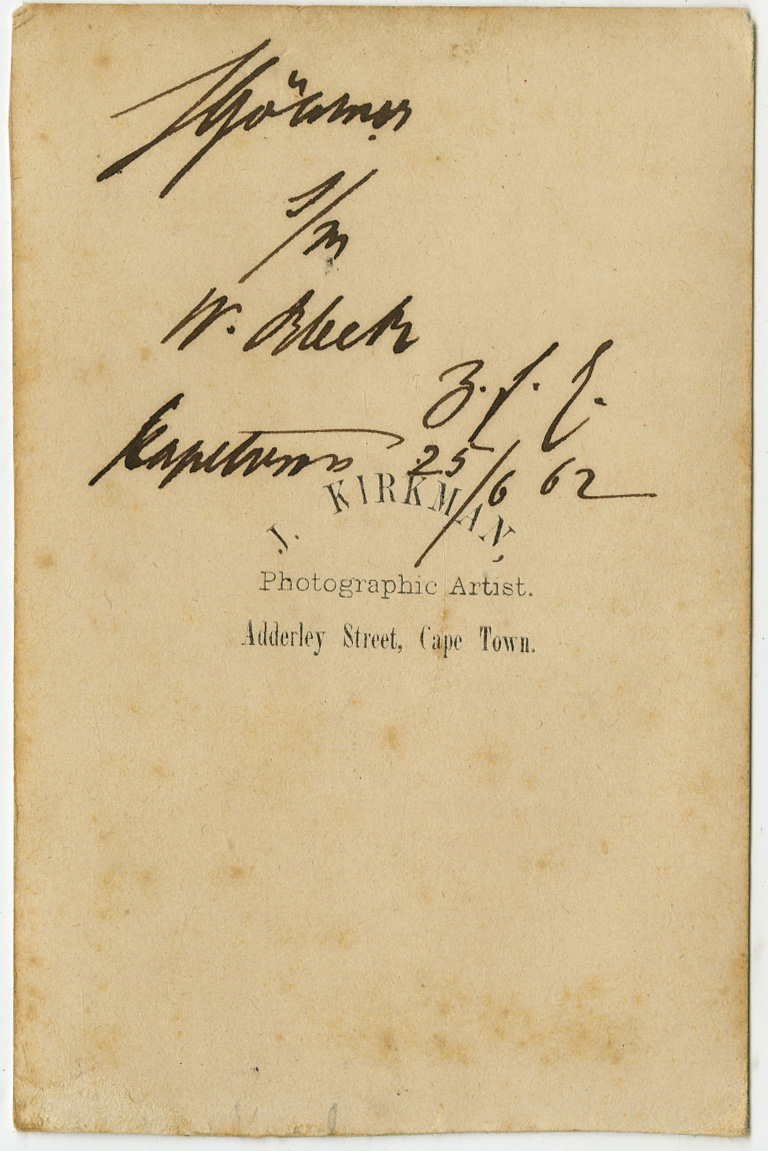 s/m
W. Bleek
Z. f. E.
Kapetown 25/6 62
J. KIRKMAN,
Photographic Artist.
Adderley Street, Cape Town.